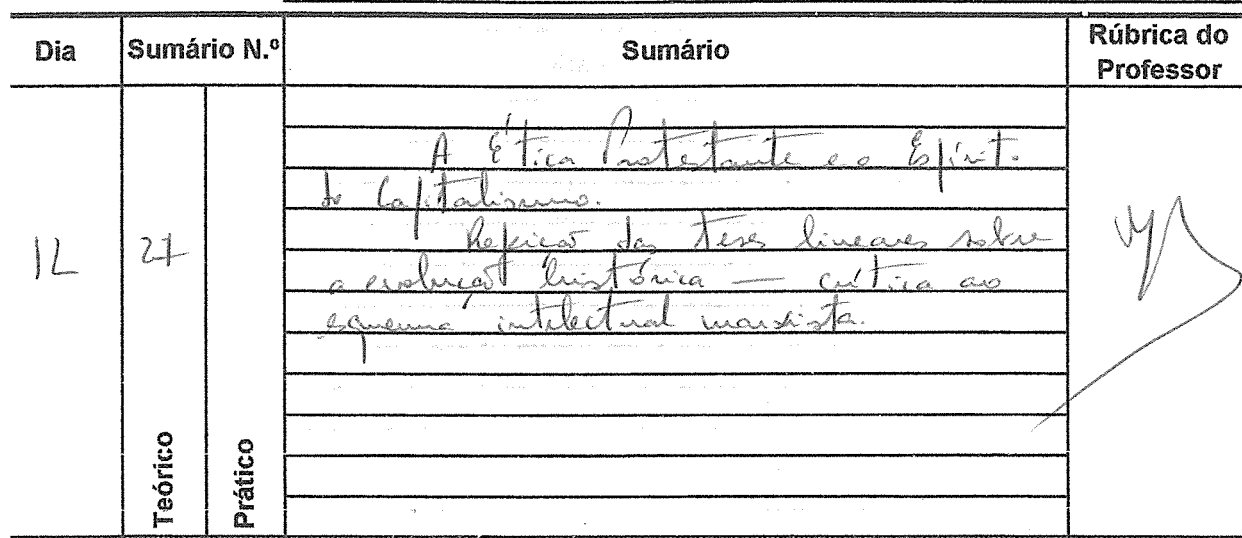 Dia Sumário N.º Sumário Rúbrica do Professor
12 27
A Ética Protestante e o Espírit.
do Capitalismo.
das teses lineares sobre
a evolução histórica — crítica ao
esquema intelectual marxista.
Teórico
Prático